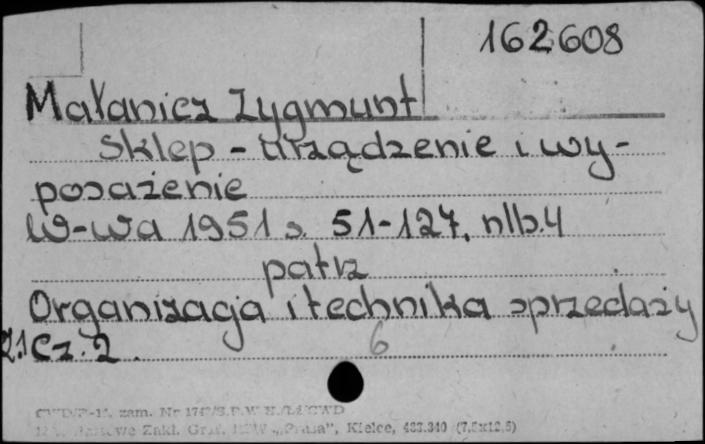 162608
Małanicz Zygmunt
Sklep - urządzenie i wy-
posażenie
W-wa 1951 s. 51-127, nlb.4
patrz
Organizacja i technika sprzedaży
Z.1 Cz. 2. 6
zam. Nr
Zakł. "Prasa", Kielce, 483.840 (7,5x12,5)